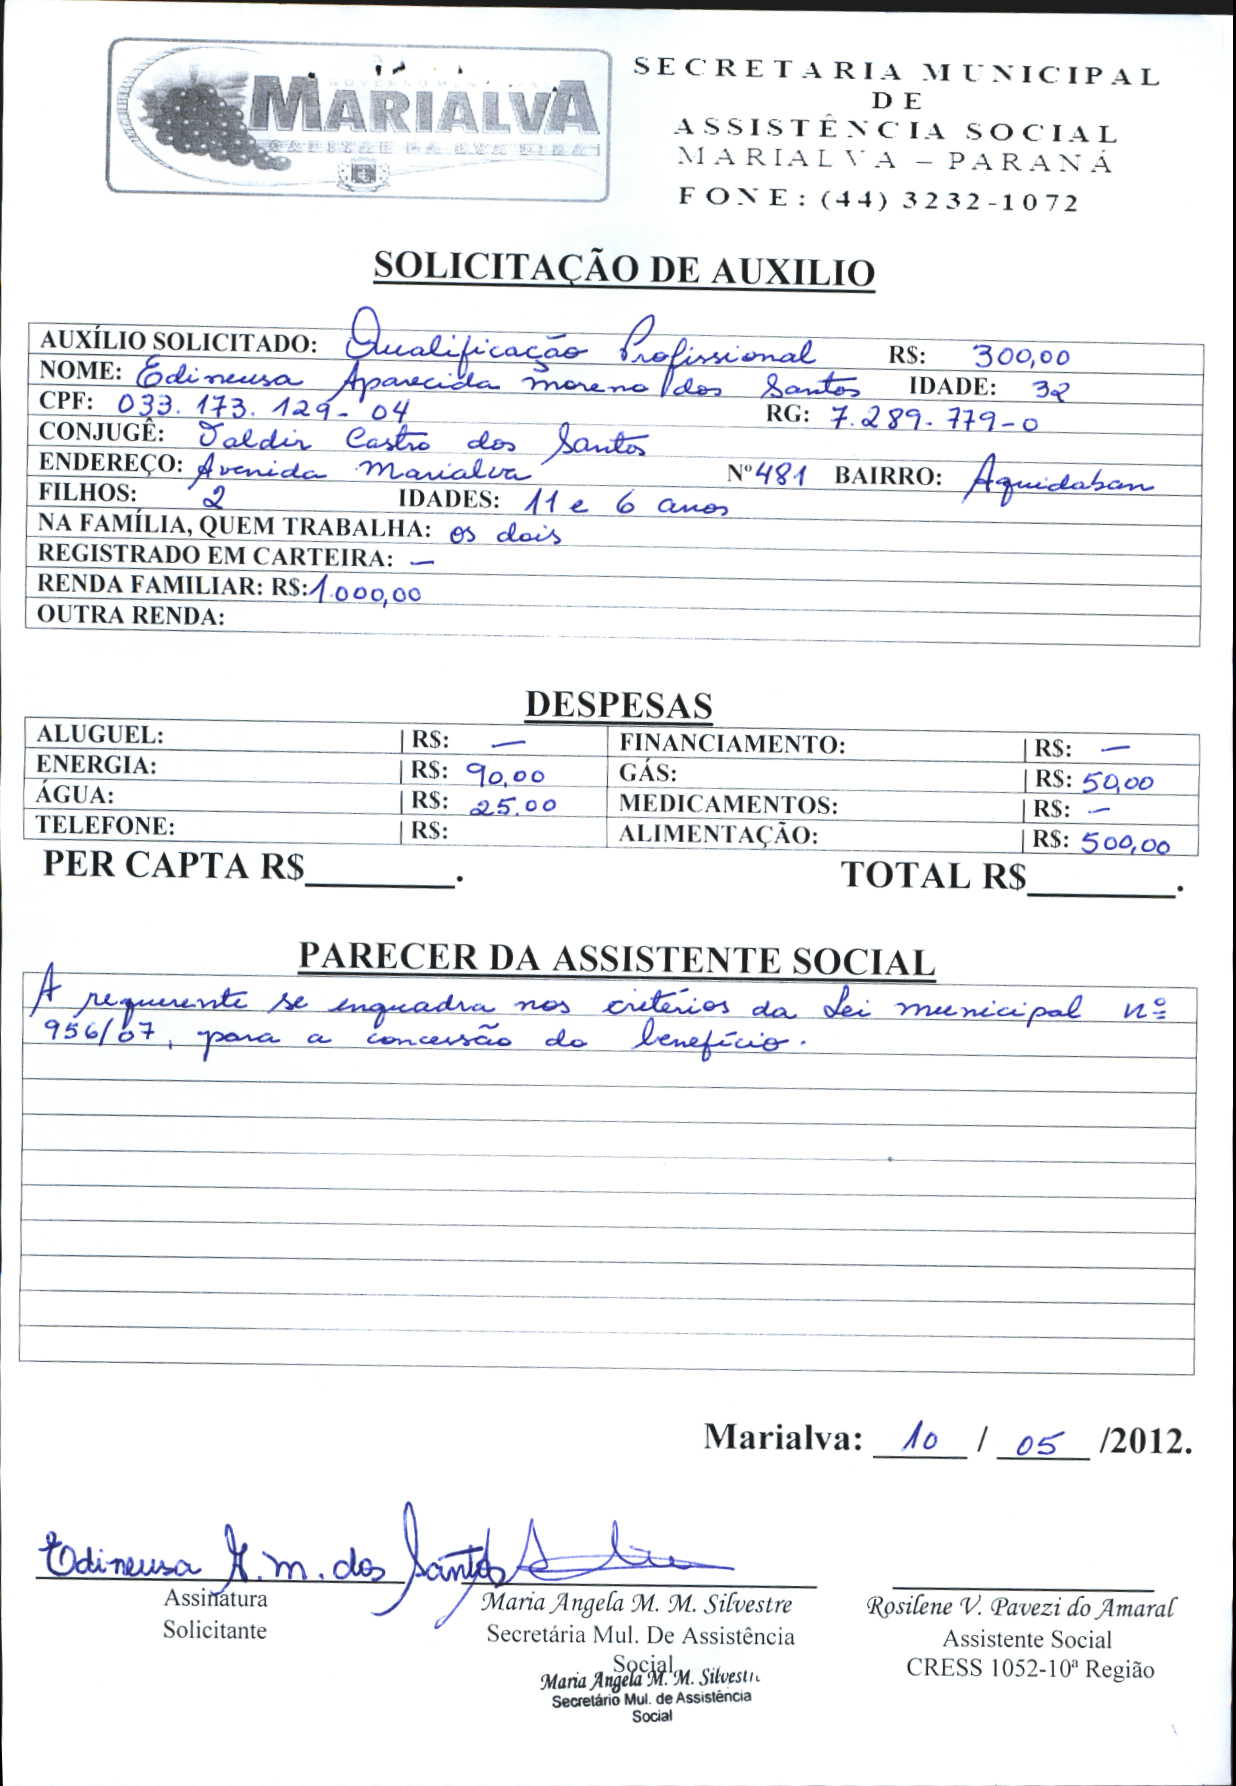 MARIALVA
SECRETARIA MUNICIPAL
DE
ASSISTÊNCIA SOCIAL
MARIALVA – PARANÁ
FONE: (44) 3232-1072
SOLICITAÇÃO DE AUXILIO
AUXÍLIO SOLICITADO: Qualificação Profissional R$: 300,00
NOME: Edineusa Aparecida Moreno dos Santos IDADE: 32
CPF: 033.173.129-04 RG: 7.289.779-0
CONJUGÊ: Valdir Castro dos Santos
ENDEREÇO: Avenida Marialva Nº 481 BAIRRO: Aquidaban
FILHOS: 2 IDADES: 11 e 6 anos
NA FAMÍLIA, QUEM TRABALHA: os dois
REGISTRADO EM CARTEIRA: —
RENDA FAMILIAR: R$: 1.000,00
OUTRA RENDA:
DESPESAS
ALUGUEL: | R$: — FINANCIAMENTO: | R$: —
ENERGIA: | R$: 90,00 GÁS: | R$: 50,00
ÁGUA: | R$: 25,00 MEDICAMENTOS: | R$: —
TELEFONE: | R$: ALIMENTAÇÃO: | R$: 500,00
PER CAPTA R$________. TOTAL R$________.
PARECER DA ASSISTENTE SOCIAL
A requerente se enquadra nos critérios da Lei municipal nº
956/07, para a concessão do benefício.
Marialva: 10 / 05 /2012.
Edineusa A. M. dos Santos
Assinatura
Solicitante
Maria Angela M. M. Silvestre
Secretária Mul. De Assistência
Social
Maria Angela M. M. Silvestre
Secretário Mul. de Assistência
Social
Rosilene V. Pavezi do Amaral
Assistente Social
CRESS 1052-10ª Região